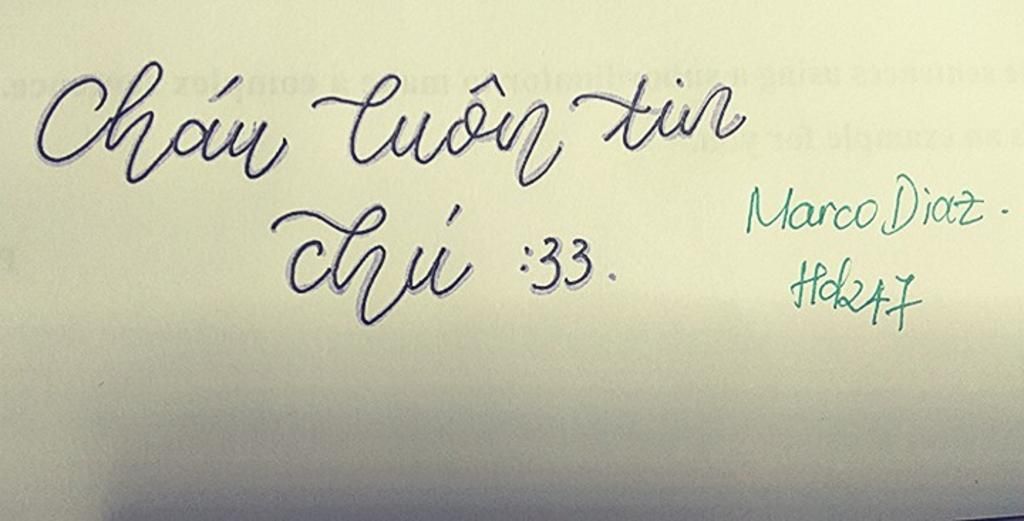 Cháu luôn tin
chú :33.
Marco Diaz.
Hdz247